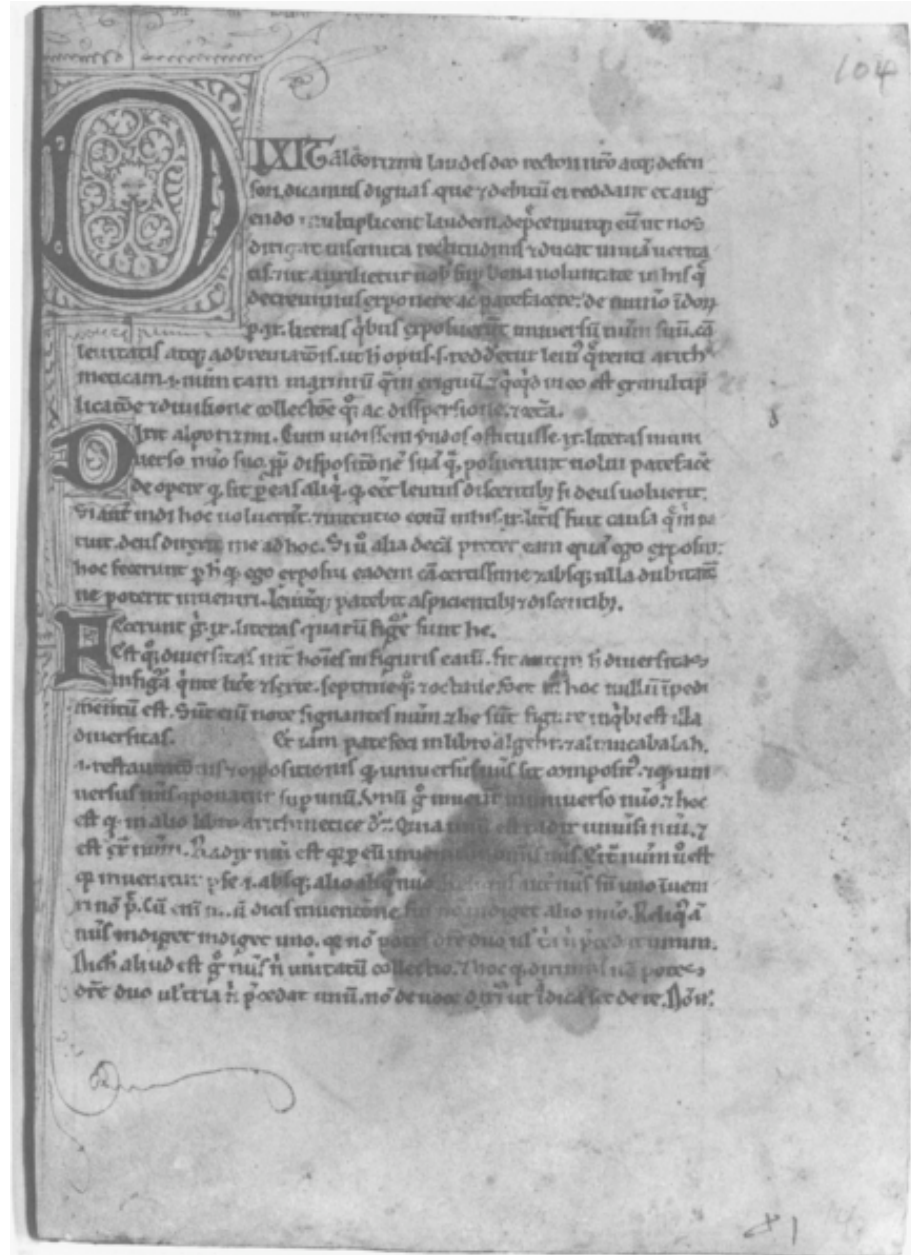 104
DIXIT algorizmi laudes deo rectori nr̄o atq; defen
sori dicamus dignas. que ⁊ debitū ei reddant et aug
endo multiplicent laudem. dep̄cemurq; eū ut nos
dirigat in semita rectitudinis ⁊ ducat in uiā uerita
tis. ⁊ ut auxilietur nob̄ sup bona uoluntate in his q̄
decreuimus exponere ac patefacere: de numō īdoꝝ
p .ix. literas q̄bus exposuerūt uniuersū nūm suū. cā
leuitatis atq; adbreuiatōis. ut h̄ opus .s. redderetur leuiꝰ q̄renti arith
meticam .i. nūm tam maximū q̄m exiguū ⁊ q̄q̄d in eo est ex multip̄
licatōe ⁊ diuisione collectōe q̄; ac disspersione. ⁊ cet̄a.
Dixit algorizmi. Cum uidissem yndos ɔstituisse .ix. literas in uni
uerso nūo suo. pp̄ dispositōne suā q̄. posuerunt uolui patefac̄e
de opere q̄. fit p eas aliq̄. q̄. eēt leuius discentibꝫ si deus uoluerit.
Si aūt indi hoc uoluerūt. ⁊ intentio eorū
tuit. deus direxit me ad hoc. Si ū alia de cā preter eam quā ego exposui.
hoc fecerunt p h̄ q̄. ego exposui eadem cā certissime ⁊ absq; ulla dubitatiō
ne poterit inueniri. leuit̄q; patebit aspicientibꝫ ⁊ discentibꝫ.
Fecerunt g̊ .ix. literas quarū fig̊e sunt he.
Est q̄; diuersitas int̄ hoīes in figuris earū. fit autem h̄ diuersitas
in fig̊a q̄nte lit̄e ⁊ sexte. septimeq̄; ⁊ octaue. Set in hoc nullū īpedi
mentum est. Sūt enī note signantes nūm ⁊ he sūt figure in q̄bꝫ est illa
diuersitas. Et iam patefeci in libro algebr. ⁊ almucabalah.
.i. restauratōnis ⁊ oppositionis q̄. uniuersus nūs sit compositꝰ. ⁊ q̄. uni
uersus nūs ɔponatur sup unū. Vnū g̊ inuenit̄ in uniuerso nūo. ⁊ hoc
est q̄. in alio libro arithmetice dr̄. Quia unū est radix uniūsi nūi. ⁊
est ext̄ nūm. Radix nūi est q̄. p eū inuenit̄ omnis nūs. Ext̄ nūm ū est
q̄. inuenitur p se .i. absq; alio aliq̄ nūo. Reliqus aūt nūs sn̄ uno īueni
ri nō p̄. Cū enī dicis inuentōne sui nō indiget alio nūo. Reliq̄ aūt
nūs indiget indiget uno. q̄. nō potes dr̄e duo uł tīa n̄ p̄cedat unum.
Nich̄ aliud est g̊ nūs n̄ unitatū collectio. ⁊ hoc q̄. diximus nō potes
dr̄e duo uł tria n̄ p̄cedat unū. nō de uoce ut ī dicā set de re. Nō n̄.